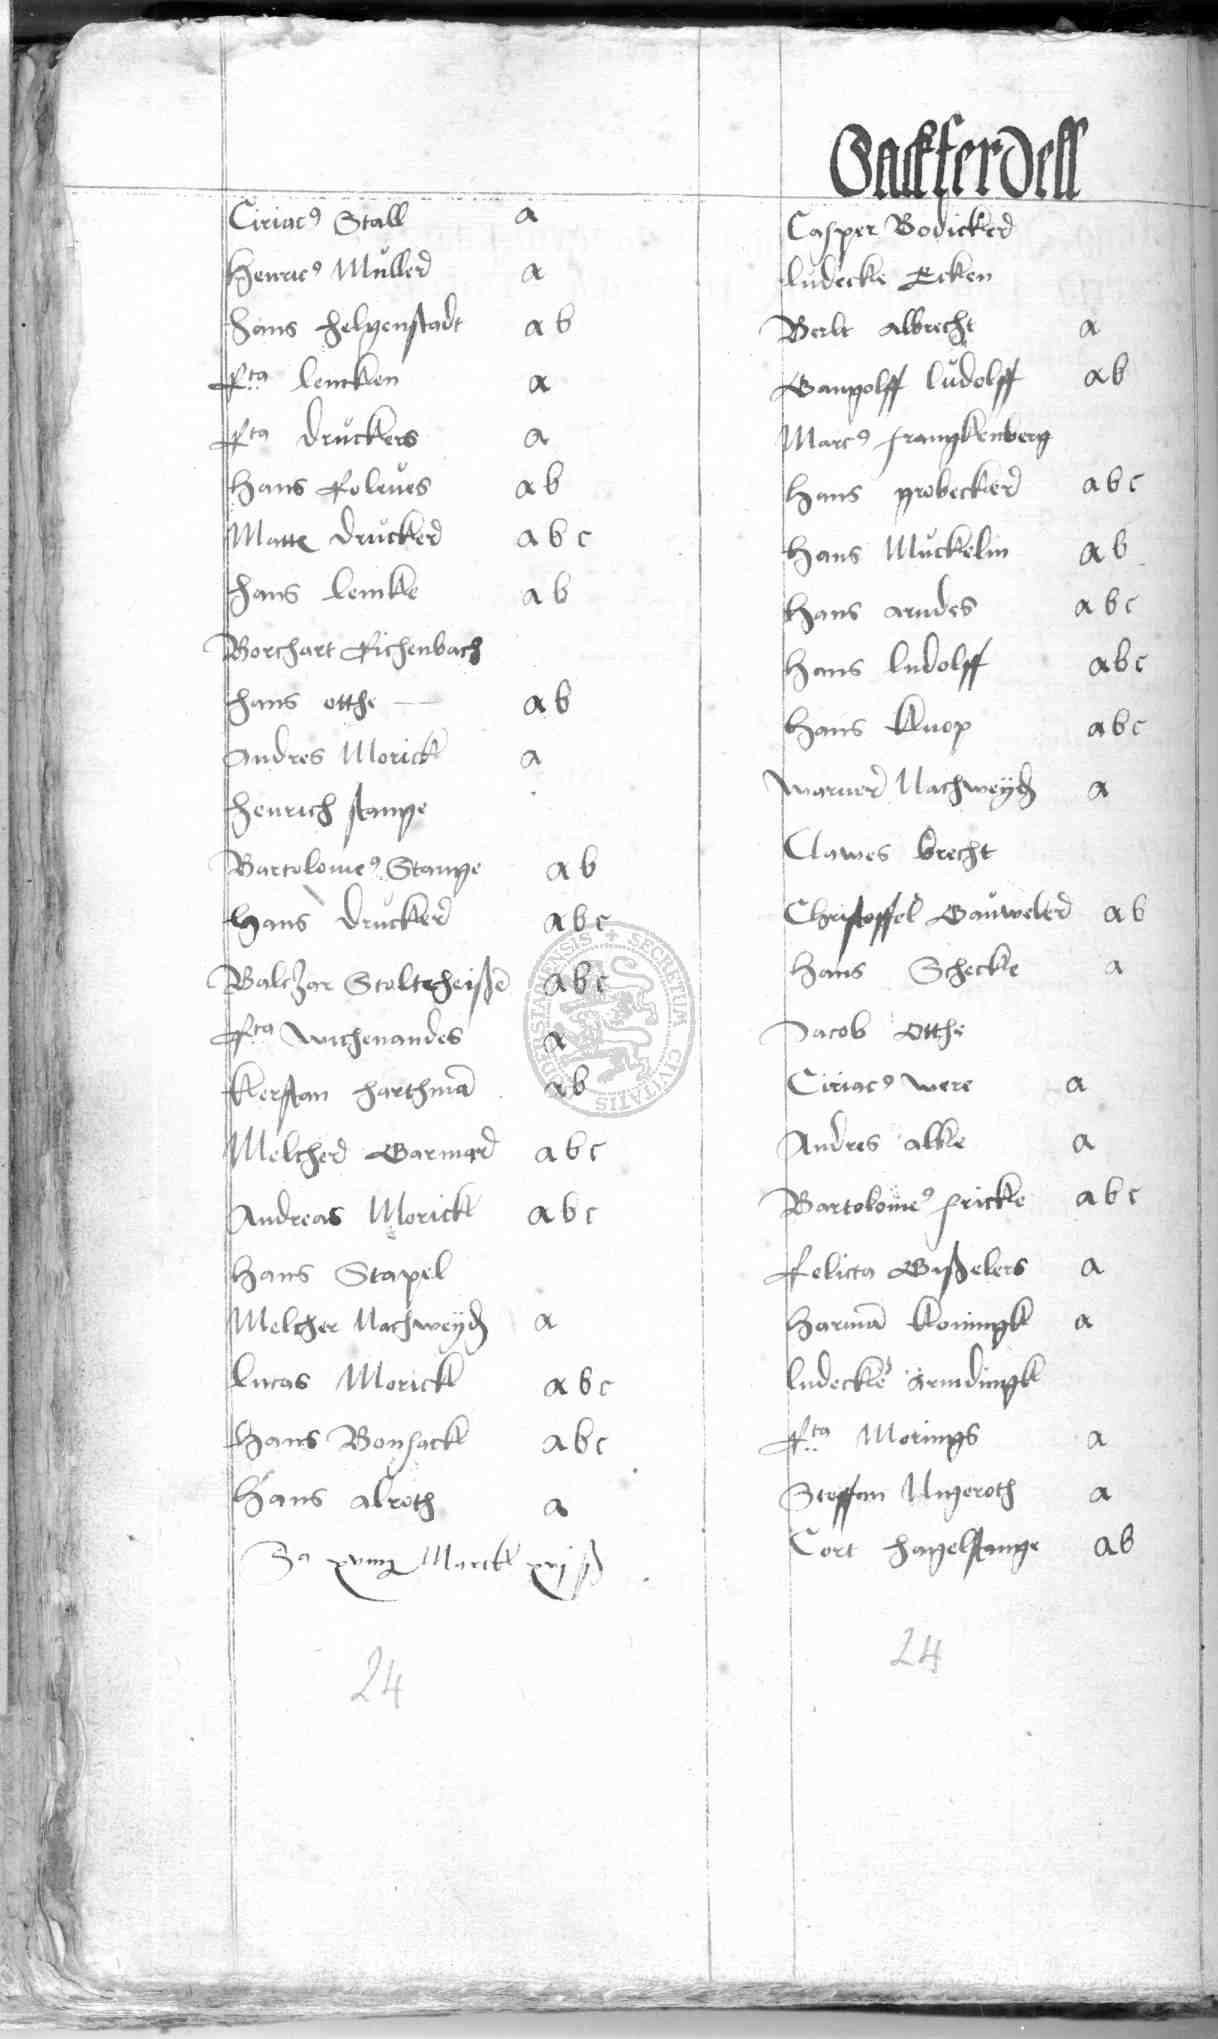 Ciriac9 Stall a
Henric9 Müller a
Hans Helgenstadt a b
Rta Lencken a
Rta Drückers a
Hans Roleües a b
Matte Drücker a b c
Hans Lemke a b
Borchart Richenbach
Hans Otthe a b
Andres Morick a
Henrich Stange
Bartolome9 Stange a b
Hans Drücker a b c
Baltzar Stolteheiße a b c
Rta Wichenandes a
Kerstan Harthmā a b
Melcher Garmer a b c
Andreas Morick a b c
Hans Stapel
Melcher Nachweyh a
Lucas Morick a b c
Hans Bonsack a b c
Hans Alroth a
Sa xviiij Marck xvj ß
24
Sackferdell
Casper Bodicker
Ludecke Ecken
Berlt Albrecht a
Gangolff Lüdolff a b
Marc9 Frangkenberg
Hans probecker a b c
Hans Mückelin a b
Hans Arndes a b c
Hans Ludolff a b c
Hans Knop a b c
Warner Nachweyh a
Clawes Brecht
Christoffel Gaüweler a b
Hans Schecke a
Jacob Otthe
Ciriac9 Were a
Andres Alke a
Bartolome9 Fricke a b c
Felicta Gyßelers a
Harmā Koningk a
Ludecke Armdingk
Rta Morings a
Steffan Ungeroth a
Cort Hagelstange a b
24
SECRETUM CIVITATIS DUDERSTADIENSIS